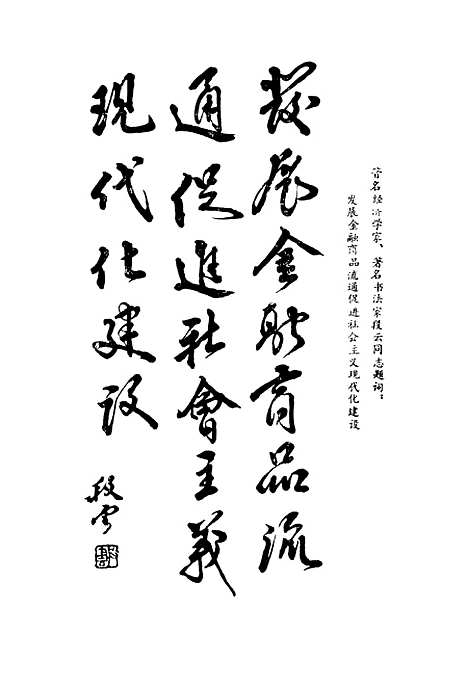 著名经济学家、著名书法家段云同志题词：
发展金融商品流通促进社会主义现代化建设
發展金融商品流
通促進社會主義
现代化建设
段云